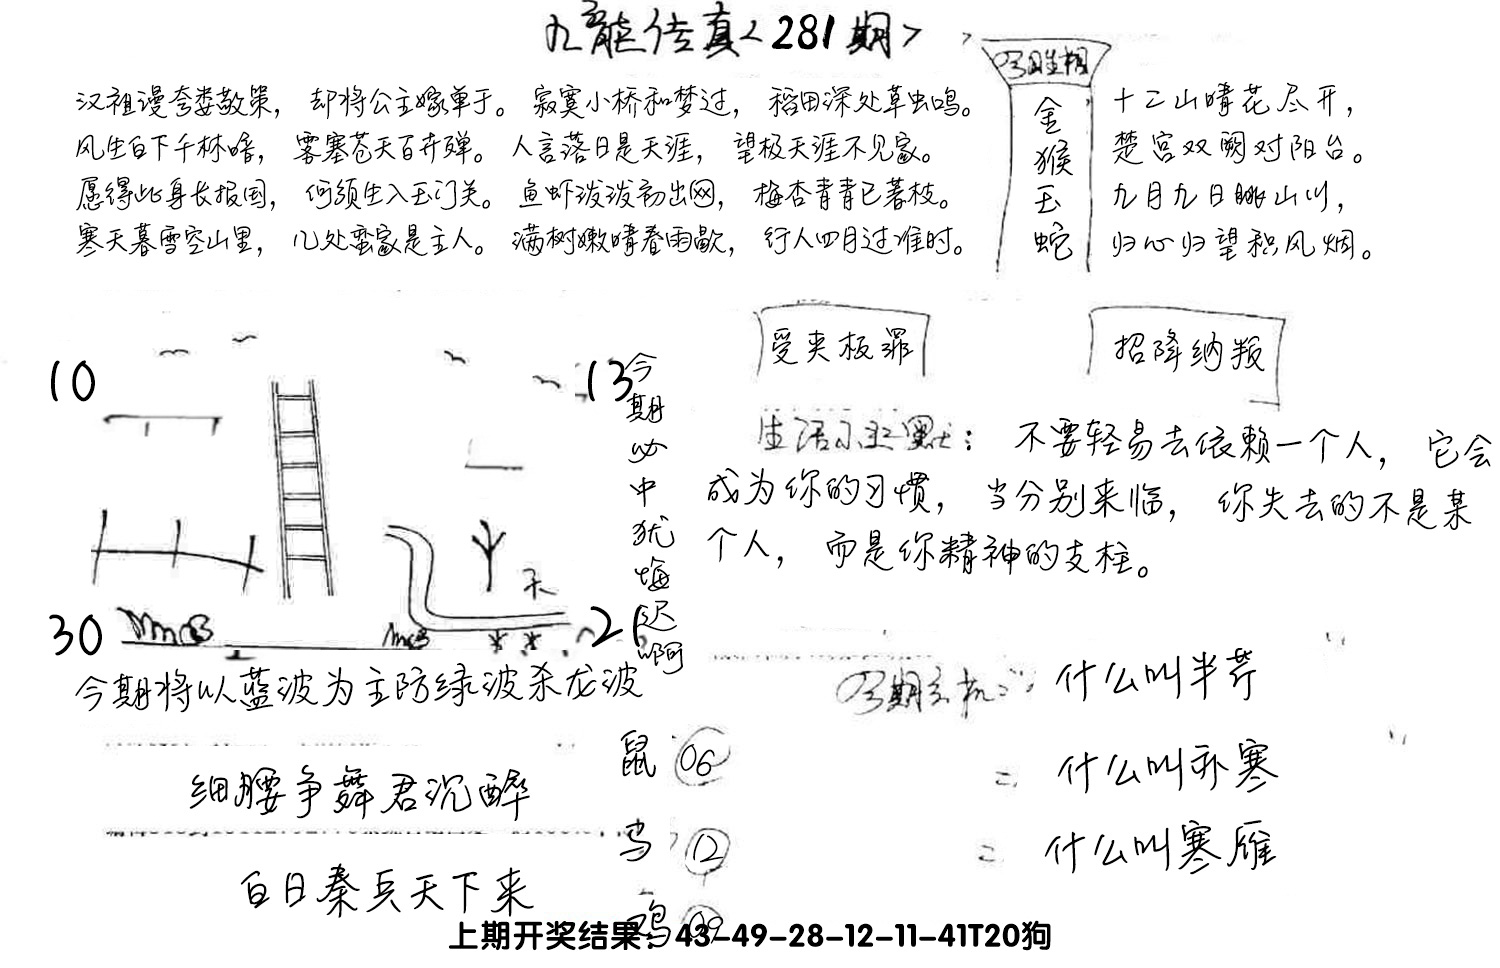 九龍传真<281期>
汉祖谩夸娄敬策，却将公主嫁单于。寂寞小桥和梦过，稻田深处草虫鸣。
风生白下千林暗，雾塞苍天百卉殚。人言落日是天涯，望极天涯不见家。
愿得此身长报国，何须生入玉门关。鱼虾泼泼初出网，梅杏青青已著枝。
寒天暮雪空山里，几处蛮家是主人。满树嫩晴春雨歇，行人四月过淮时。
今期生相
金
猴
玉
蛇
十二山晴花尽开，
楚宫双阙对阳台。
九月九日眺山川，
归心归望积风烟。
受夹板罪
招降纳叛
10
13
30
21
今期必中犹悔迟啊
生活小幽默：不要轻易去依赖一个人，它会
成为你的习惯，当分别来临，你失去的不是某
个人，而是你精神的支柱。
今期将以蓝波为主防绿波杀龙波
细腰争舞君沉醉
白日秦兵天下来
鼠 06
鸡 09
今期玄机：什么叫半芹
= 什么叫孙寒
= 什么叫寒雁
上期开奖结果：43-49-28-12-11-41T20狗